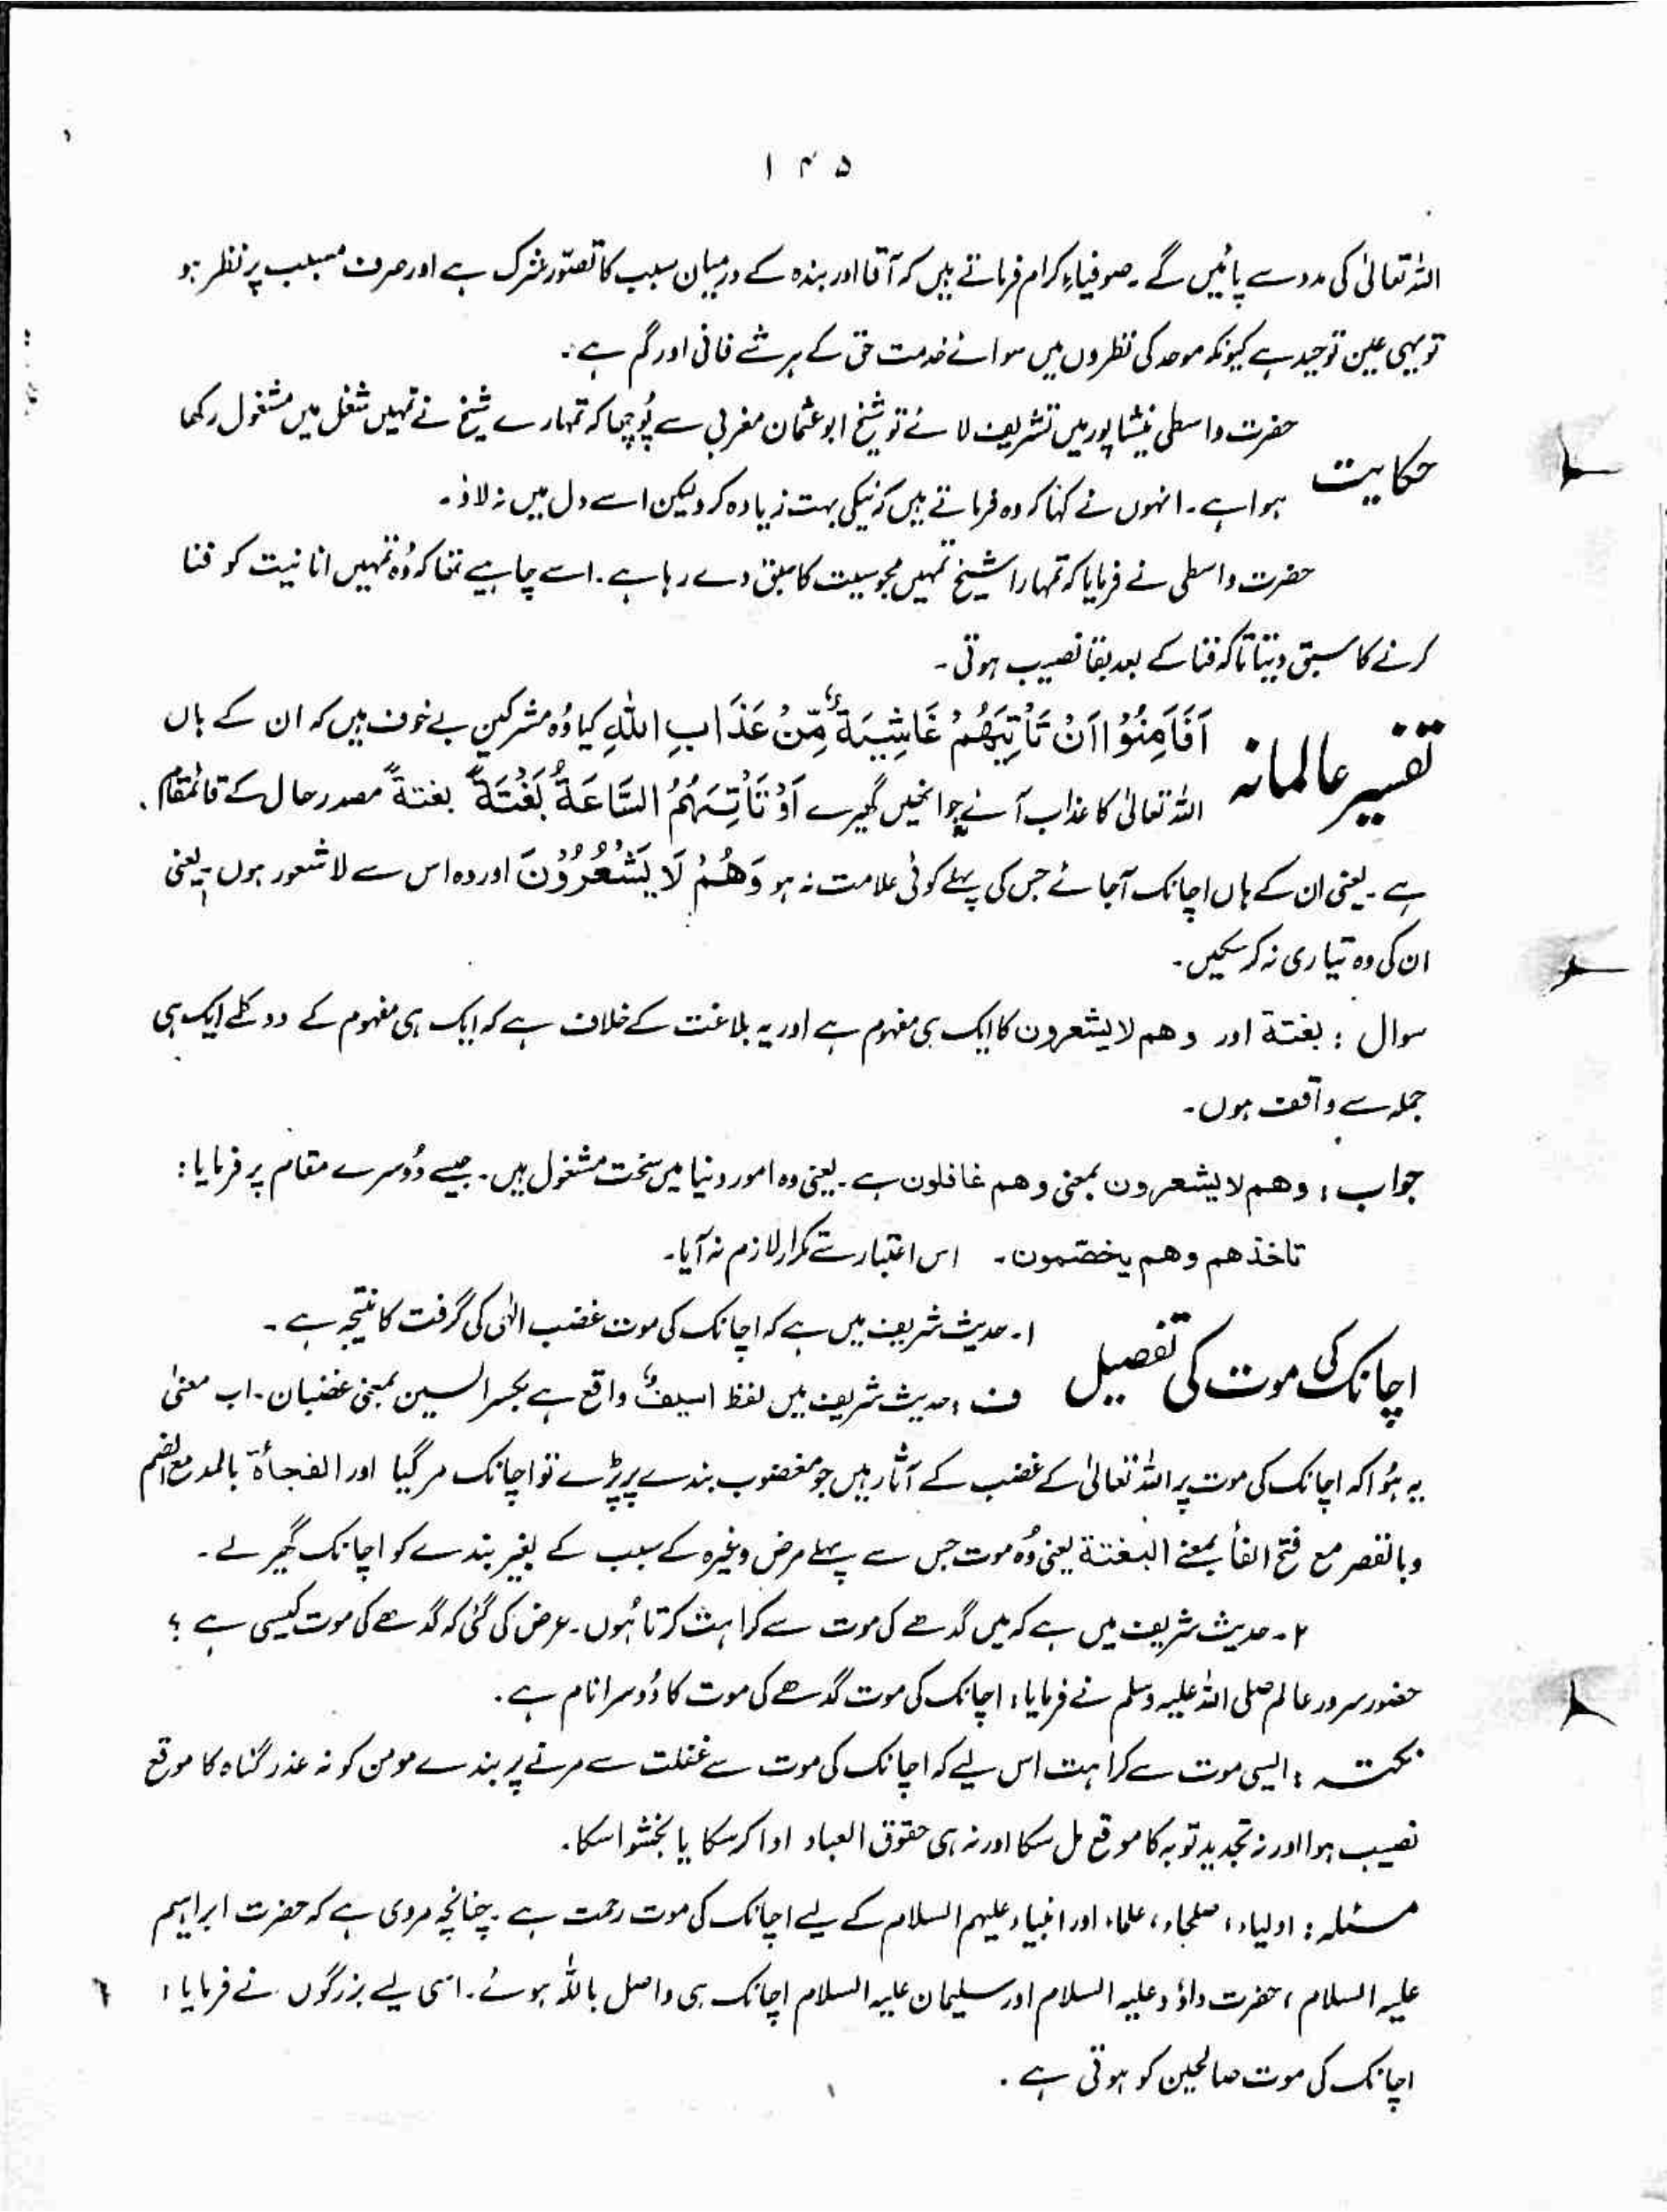 ۱۴۵
اللہ تعالیٰ کی مدد سے پائیں گے ۔ صوفیاءِ کرام فرماتے ہیں کہ آقا اور بندہ کے درمیان سبب کا تصوّر شرک ہے اور صرف مسبب پر نظر ہو
تو یہی عین توحید ہے کیونکہ موحد کی نظروں میں سوائے خدمت حق کے ہر شے فانی اور گم ہے ۔
حضرت واسطی نیشاپور میں تشریف لائے تو شیخ ابوعثمان مغربی سے پُوچھا کہ تمہارے شیخ نے تمہیں شغل میں مشغول رکھا
حکایت ہوا ہے ۔ انہوں نے کہا کہ وہ فرماتے ہیں کہ نیکی بہت زیادہ کرو لیکن اسے دل میں نہ لاؤ ۔
حضرت واسطی نے فرمایا کہ تمہارا شیخ تمہیں مجوسیت کا سبق دے رہا ہے ۔ اسے چاہیے تھا کہ وُہ تمہیں انانیت کو فنا
کرنے کا سبق دیتا تاکہ فنا کے بعد بقا نصیب ہوتی ۔
تفسیر عالمانہ اَفَاَمِنُوْا اَنْ تَاْتِیَهُمْ غَاشِیَةٌ مِّنْ عَذَابِ اللّٰهِ کیا وُہ مشرکین بے خوف ہیں کہ ان کے ہاں
اللہ تعالیٰ کا عذاب آئے جو انھیں گھیرے اَوْ تَاْتِیَهُمُ السَّاعَةُ بَغْتَةً بغتةً مصدر حال کے قائمقام
ہے ۔ یعنی ان کے ہاں اچانک آجائے جس کی پہلے کوئی علامت نہ ہو وَهُمْ لَا یَشْعُرُوْنَ اور وہ اس سے لاشعور ہوں ۔ یعنی
ان کی وہ تیاری نہ کرسکیں ۔
سوال : بغتة اور وهم لا يشعرون کا ایک ہی مفہوم ہے اور یہ بلاغت کے خلاف ہے کہ ایک ہی مفہوم کے دو کلمے ایک ہی
جملہ سے واقف ہوں ۔
جواب : وهم لا يشعرون بمعنی وهم غافلون ہے ۔ یعنی وہ امورِ دنیا میں سخت مشغول ہیں ۔ جیسے دُوسرے مقام پر فرمایا :
تاخذهم وهم يخصّمون ۔ اس اعتبار سے تکرار لازم نہ آیا ۔
۱ ۔ حدیث شریف میں ہے کہ اچانک کی موت غضبِ الٰہی کی گرفت کا نتیجہ ہے ۔
اچانک کی موت کی تفصیل ف : حدیث شریف میں لفظ اسیفٌ واقع ہے بکسر السین بمعنی غضبان ۔ اب معنیٰ
یہ ہُوا کہ اچانک کی موت پر اللہ تعالیٰ کے غضب کے آثار ہیں جو مغضوب بندے پر پڑے تو اچانک مر گیا اور الفجأة بالمد مع الضم
وبالقصر مع فتح الفأ بمعنے البغتة یعنی وُہ موت جس سے پہلے مرض وغیرہ کے سبب کے بغیر بندے کو اچانک گھیر لے ۔
۲ ۔ حدیث شریف میں ہے کہ میں گدھے کی موت سے کراہت کرتا ہُوں ۔ عرض کی گئی کہ گدھے کی موت کیسی ہے ؟
حضور سرور عالم صلی اللہ علیہ وسلم نے فرمایا : اچانک کی موت گدھے کی موت کا دُوسرا نام ہے ۔
نکتہ : ایسی موت سے کراہت اس لیے کہ اچانک کی موت سے غفلت سے مرنے پر بندے مومن کو نہ عذر گناہ کا موقع
نصیب ہوا اور نہ تجدیدِ توبہ کا موقع مل سکا اور نہ ہی حقوق العباد ادا کرسکا یا بخشوا سکا ۔
مسئلہ : اولیاء ، صلحاء ، علماء اور انبیاء علیہم السلام کے لیے اچانک کی موت رحمت ہے ۔ چنانچہ مروی ہے کہ حضرت ابراہیم
علیہ السلام ، حضرت داؤد علیہ السلام اور سلیمان علیہ السلام اچانک ہی واصل باللہ ہوئے ۔ اسی لیے بزرگوں نے فرمایا :
اچانک کی موت صالحین کو ہوتی ہے ۔